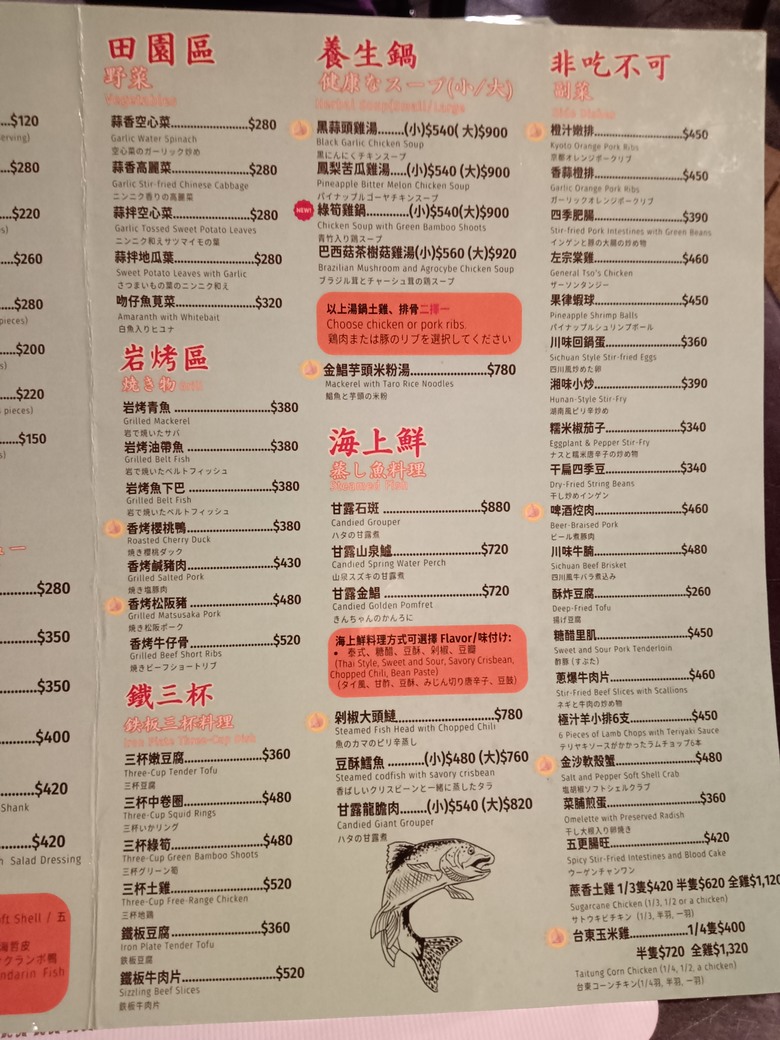 ...$120
erving)
...$280
...$220
s)
...$260
...$280
pieces)
...$200
s)
...$220
pieces)
...$150
s)
...$280
...$350
...$350
...$400
...$420
Shank
...$420
Salad Dressing
oft Shell / 五
ndarin Fish
田園區
野菜
Vegetables
蒜香空心菜...$280
Garlic Water Spinach
空心菜のガーリック炒め
蒜香高麗菜...$280
Garlic Stir-fried Chinese Cabbage
ニンニク香りの高麗菜
蒜拌空心菜...$280
Garlic Tossed Sweet Potato Leaves
ニンニク和えサツマイモの葉
蒜拌地瓜葉...$280
Sweet Potato Leaves with Garlic
さつまいもの葉のニンニク和え
吻仔魚莧菜...$320
Amaranth with Whitebait
白魚入りヒユナ
岩烤區
焼き物
岩烤青魚...$380
Grilled Mackerel
岩で焼いたサバ
岩烤油帶魚...$380
Grilled Belt Fish
岩で焼いたベルトフィッシュ
岩烤魚下巴...$380
Grilled Belt Fish
岩で焼いたベルトフィッシュ
香烤櫻桃鴨...$380
Roasted Cherry Duck
焼き櫻桃ダック
香烤鹹豬肉...$430
Grilled Salted Pork
焼き塩豚肉
香烤松阪豬...$480
Grilled Matsusaka Pork
焼き松阪ポーク
香烤牛仔骨...$520
Grilled Beef Short Ribs
焼きビーフショートリブ
鐵三杯
鉄板三杯料理
Iron Plate Three-Cup Dish
三杯嫩豆腐...$360
Three-Cup Tender Tofu
三杯豆腐
三杯中卷圈...$480
Three-Cup Squid Rings
三杯いかリング
三杯綠筍...$480
Three-Cup Green Bamboo Shoots
三杯グリーン筍
三杯土雞...$520
Three-Cup Free-Range Chicken
三杯地鶏
鐵板豆腐...$360
Iron Plate Tender Tofu
鉄板豆腐
鐵板牛肉片...$520
Sizzling Beef Slices
鉄板牛肉片
養生鍋
健康なスープ(小/大)
Herbal Soup(Small/Large
黑蒜頭雞湯...(小)$540( 大)$900
Black Garlic Chicken Soup
黒にんにくチキンスープ
鳳梨苦瓜雞湯...(小)$540 (大)$900
Pineapple Bitter Melon Chicken Soup
パイナップルゴーヤチキンスープ
NEW!
綠筍雞鍋...(小)$540(大)$900
Chicken Soup with Green Bamboo Shoots
青竹入り鶏スープ
巴西菇茶樹菇雞湯(小)$560 (大)$920
Brazilian Mushroom and Agrocybe Chicken Soup
ブラジル茸とチャーシュ茸の鶏スープ
以上湯鍋土雞、排骨二擇一
Choose chicken or pork ribs.
鶏肉または豚のリブを選択してください
金鯧芋頭米粉湯...$780
Mackerel with Taro Rice Noodles
鯧魚と芋頭の米粉
海上鮮
蒸し魚料理
Steamed Fish
甘露石斑...$880
Candied Grouper
ハタの甘露煮
甘露山泉鱸...$720
Candied Spring Water Perch
山泉スズキの甘露煮
甘露金鯧...$720
Candied Golden Pomfret
きんちゃんのかんろに
海上鮮料理方式可選擇 Flavor/味付け:
• 泰式、糖醋、豆酥、剁椒、豆瓣
(Thai Style, Sweet and Sour, Savory Crisbean,
Chopped Chili, Bean Paste)
(タイ風、甘酢、豆酥、みじん切り唐辛子、豆鼓)
剁椒大頭鰱...$780
Steamed Fish Head with Chopped Chili
魚のカマのピリ辛蒸し
豆酥鱈魚...(小)$480 (大)$760
Steamed codfish with savory crisbean
香ばしいクリスビーンと一緒に蒸したタラ
甘露龍膽肉...(小)$540 (大)$820
Candied Giant Grouper
ハタの甘露煮
非吃不可
副菜
Side Dishes
橙汁嫩排...$450
Kyoto Orange Pork Ribs
京都オレンジポークリブ
香蒜橙排...$450
Garlic Orange Pork Ribs
ガーリックオレンジポークリブ
四季肥腸...$390
Stir-fried Pork Intestines with Green Beans
インゲンと豚の大腸の炒め物
左宗棠雞...$460
General Tso's Chicken
ザーソンタンジー
果律蝦球...$450
Pineapple Shrimp Balls
パイナップルシュリンプボール
川味回鍋蛋...$360
Sichuan Style Stir-fried Eggs
四川風炒めた卵
湘味小炒...$390
Hunan-Style Stir-Fry
湖南風ピリ辛炒め
糯米椒茄子...$340
Eggplant & Pepper Stir-Fry
ナスと糯米唐辛子の炒め物
干扁四季豆...$340
Dry-Fried String Beans
干し炒めインゲン
啤酒焢肉...$460
Beer-Braised Pork
ビール煮豚肉
川味牛腩...$480
Sichuan Beef Brisket
四川風牛バラ煮込み
酥炸豆腐...$260
Deep-Fried Tofu
揚げ豆腐
糖醋里肌...$450
Sweet and Sour Pork Tenderloin
酢豚 (すぶた)
蔥爆牛肉片...$460
Stir-Fried Beef Slices with Scallions
ネギと牛肉の炒め物
極汁羊小排6支...$450
6 Pieces of Lamb Chops with Teriyaki Sauce
テリヤキソースがかかったラムチョップ6本
金沙軟殼蟹...$480
Salt and Pepper Soft Shell Crab
塩胡椒ソフトシェルクラブ
菜脯煎蛋...$360
Omelette with Preserved Radish
干し大根入り卵焼き
五更腸旺...$420
Spicy Stir-Fried Intestines and Blood Cake
ウーゲンチャンワン
蔗香土雞 1/3隻$420 半隻$620 全雞$1,120
Sugarcane Chicken (1/3, 1/2 or a chicken)
サトウキビチキン (1/3, 半羽, 一羽)
台東玉米雞...1/4隻$400
半隻$720 全雞$1,320
Taitung Corn Chicken (1/4, 1/2, a chicken)
台東コーンチキン(1/4羽, 半羽, 一羽)